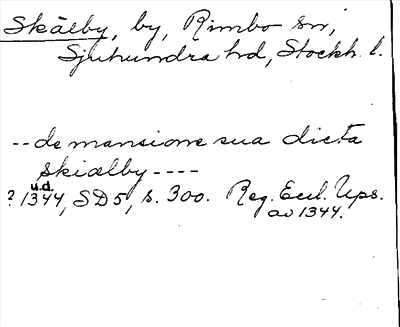 Skälby, by, Rimbo sn,
Sjuhundra hd, Stockh. l.
-- de mansione sua dicta
skiælby ----
u.d.
? 1344, SD 5, s. 300. Reg. Eccl. Ups.
av 1344.